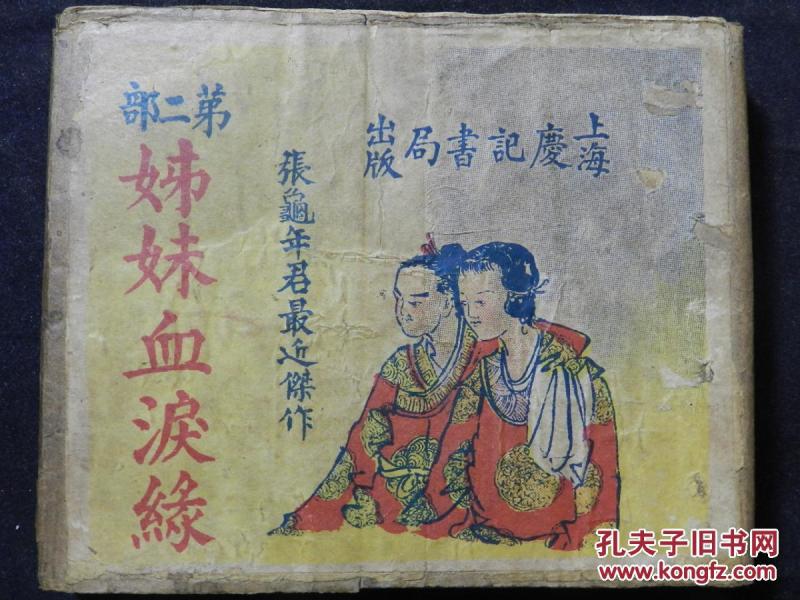 上海慶記書局出版
張龜年君最近傑作
第二部
姊妹血淚緣
孔夫子旧书网
www.kongfz.com